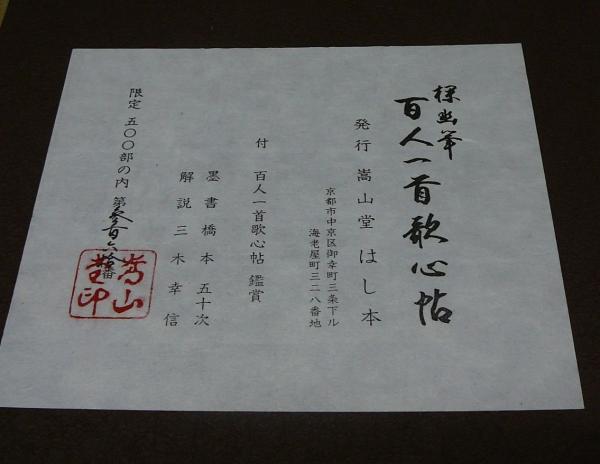 探幽筆
百人一首歌心帖
発行 嵩山堂 はし本
京都市中京区御幸町三条下ル
海老屋町三二八番地
付 百人一首歌心帖 鑑賞
墨書 橋本 五十次
解説 三木 幸信
限定 五〇〇部の内 第参百六拾番
嵩山堂印